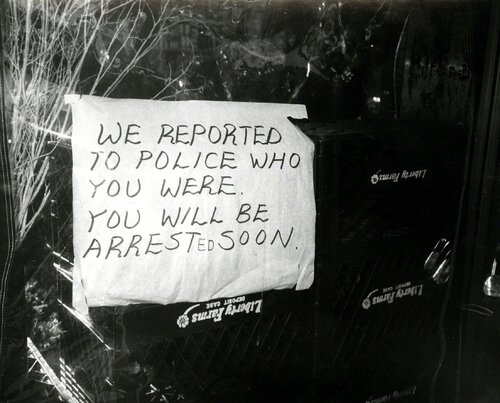 WE REPORTED
TO POLICE WHO
YOU WERE.
YOU WILL BE
ARRESTED SOON.
Liberty Farms
Liberty Farms
Liberty Farms
DEPORT CASE